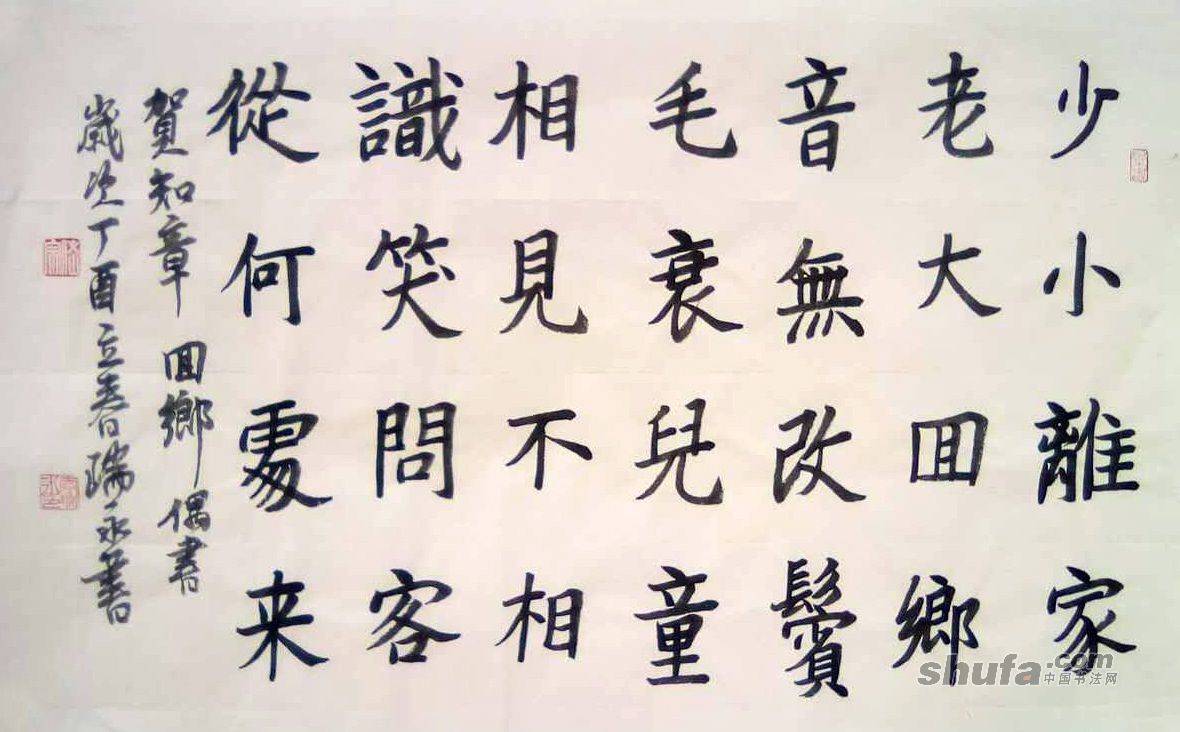 少小離家
老大囬鄉
音無改鬢
毛衰兒童
相見不相
識笑問客
從何處来
賀知章 囬鄉偶書
歲次丁酉立春瑞永書
shufa.com
中国书法网